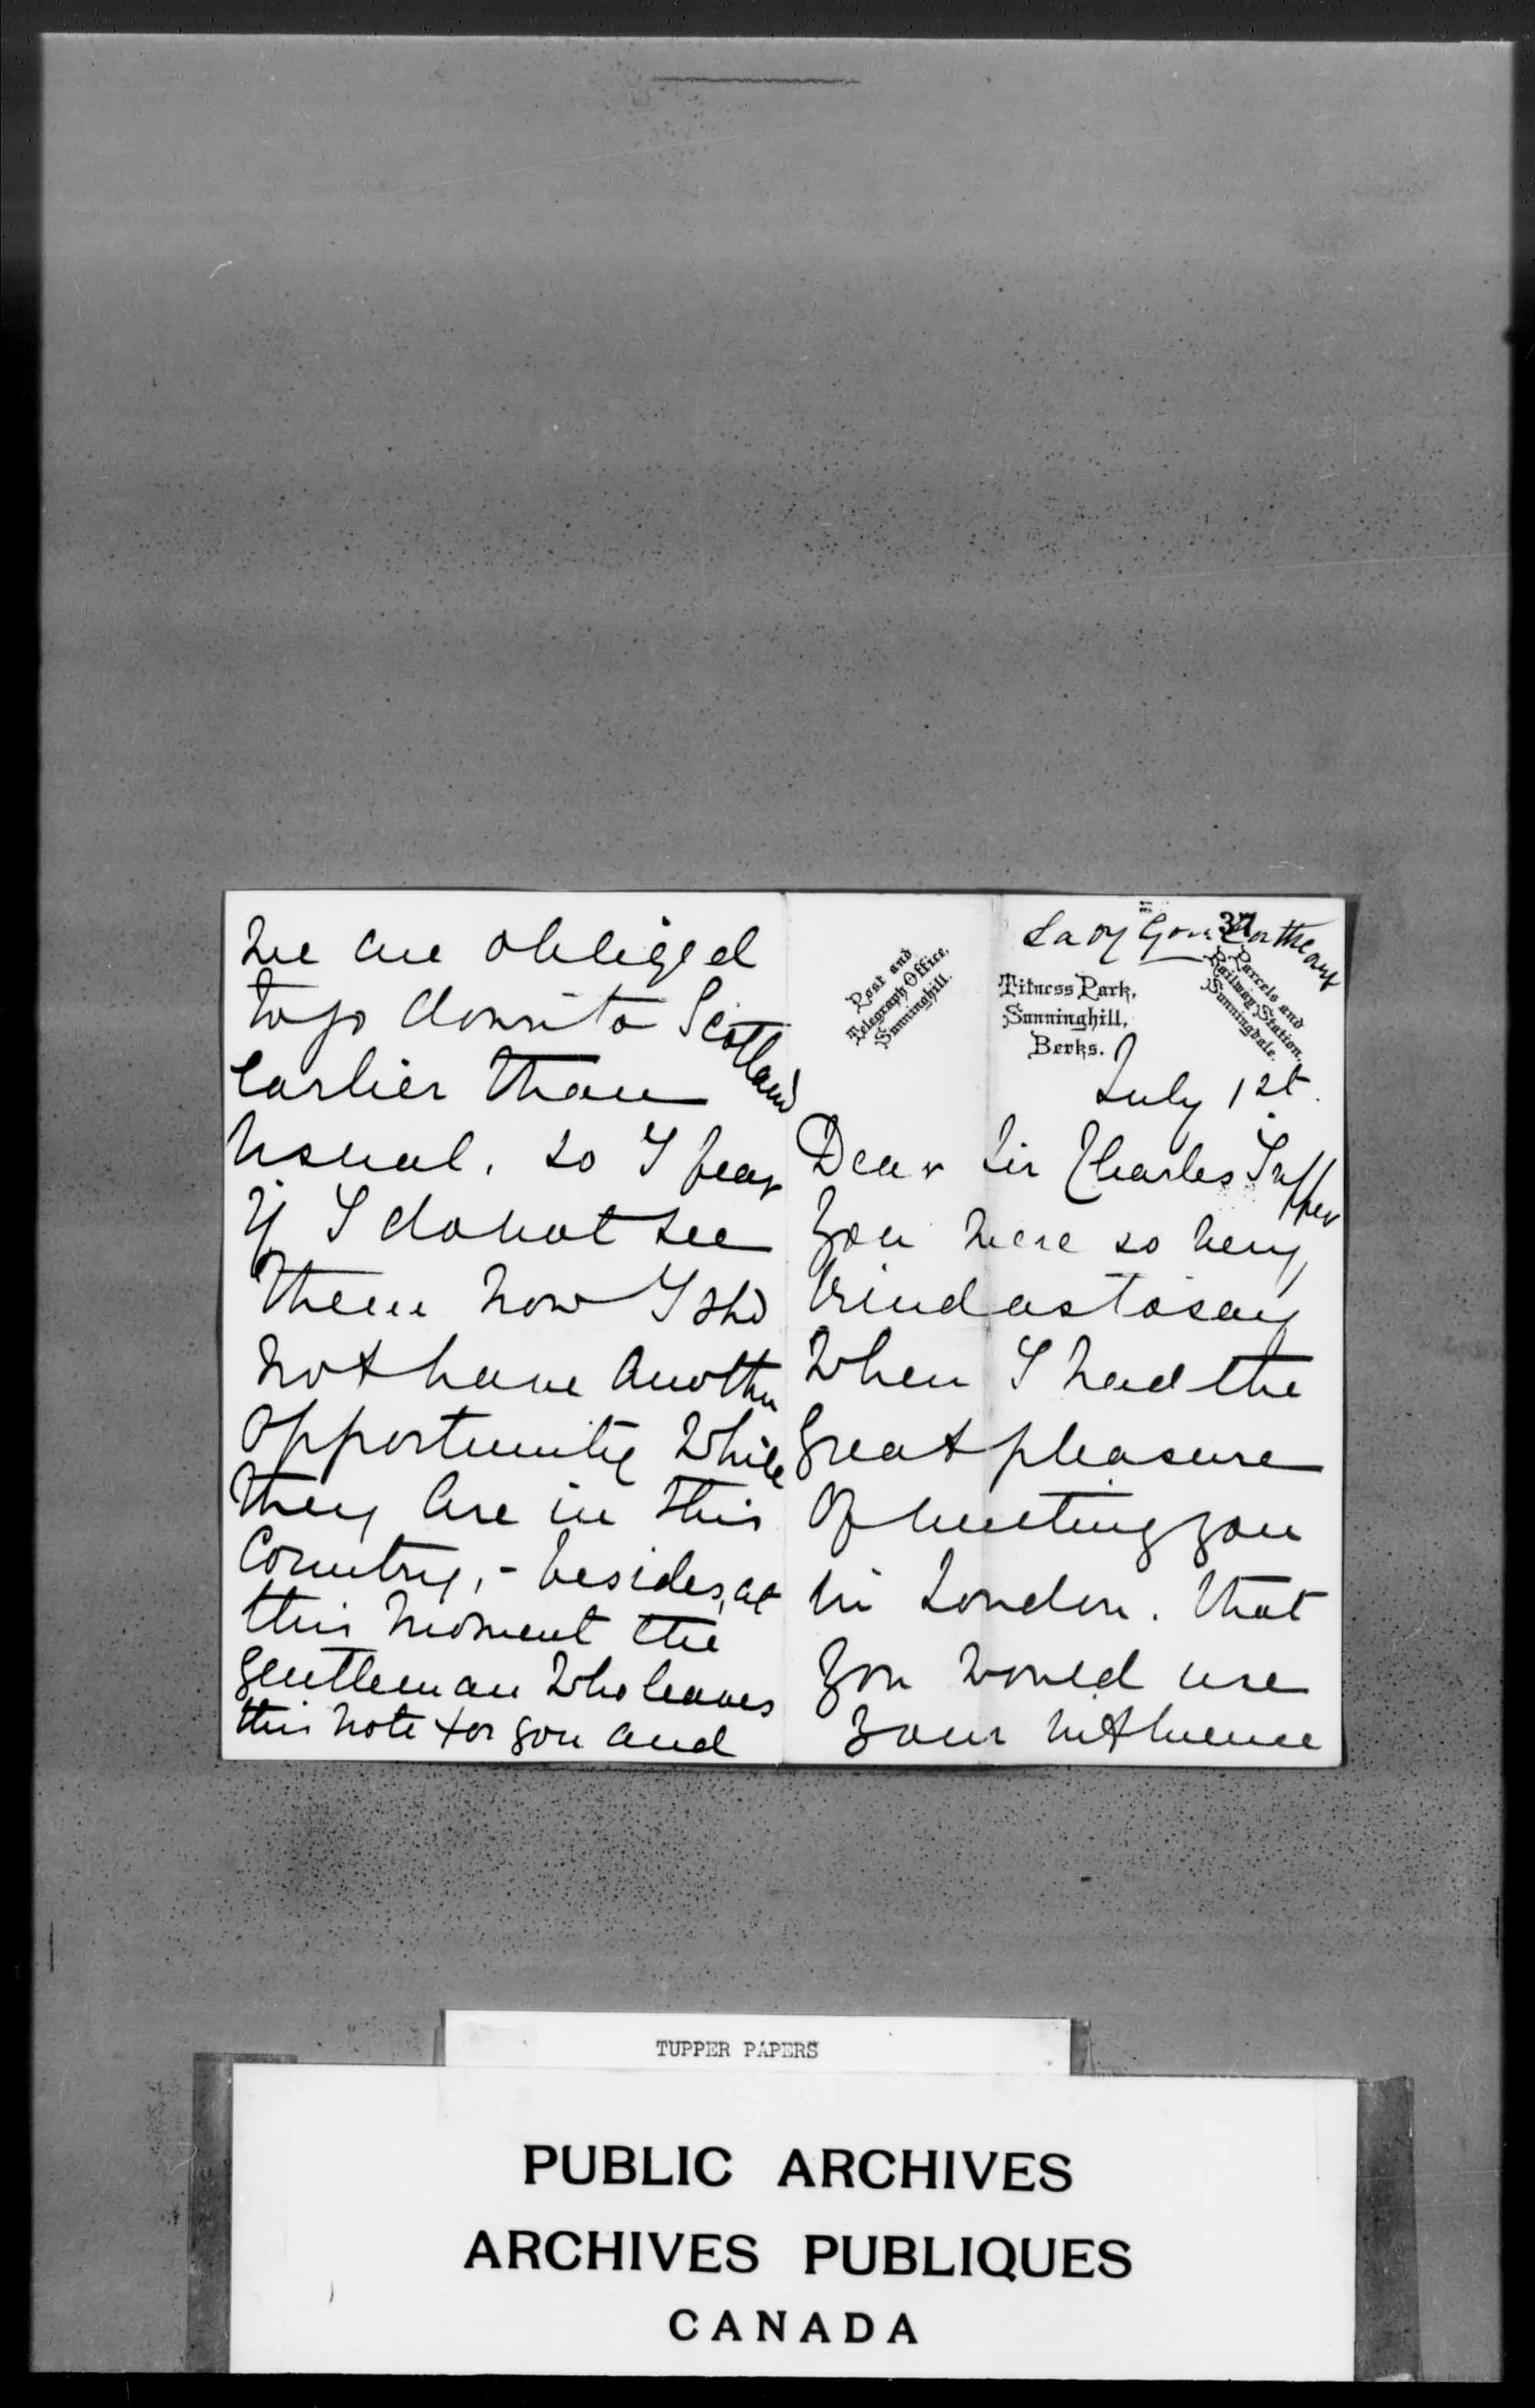 we are obliged
to go down to Scotland
earlier than
usual. so I fear
if I do not see
them now I shd
not have another
opportunity while
they are in this
Country, - besides, at
this moment the
gentleman who leaves
this note for you and
Lady
37
Post and
Telegraph Office,
Sunninghill.
Titness Park,
Sunninghill,
Berks.
Parcels and
Railway Station,
Sunningdale.
July 1st.
Dear Sir Charles Tupper
You were so very
kind as to say
when I had the
great pleasure
of meeting you
in London. that
you would use
your influence
TUPPER PAPERS
PUBLIC ARCHIVES
ARCHIVES PUBLIQUES
CANADA